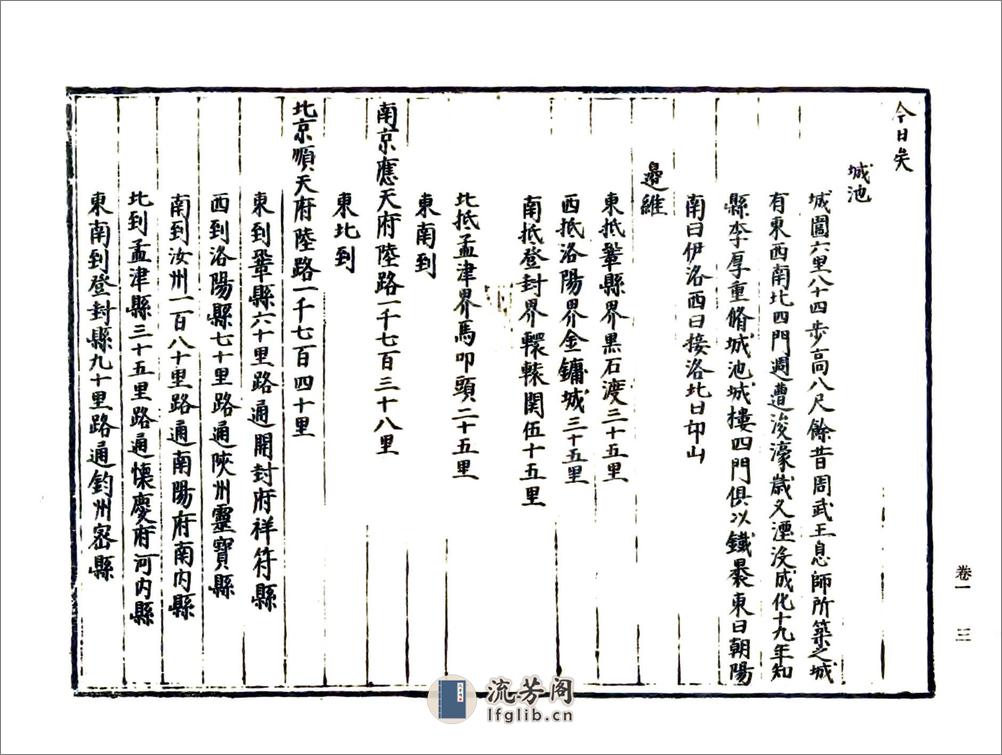 今日矣
城池
城圍六里八十四步高八尺餘昔周武王息師所築之城
有東西南北四門週遭浚濠歲久湮没成化十九年知
縣李厚重脩城池城樓四門俱以鐵裹東曰朝陽
南曰伊洛西曰接洛北曰邙山
邊維
東抵鞏縣界黑石渡三十五里
西抵洛陽界金鏞城三十五里
南抵登封界轘轅関伍十五里
北抵孟津界馬叩頭二十五里
東南到
南京應天府陸路一千七百三十八里
東北到
北京順天府陸路一千七百四十里
東到鞏縣六十里路通開封府祥符縣
西到洛陽縣七十里路通陝州靈寶縣
南到汝州一百八十里路通南陽府南内縣
北到孟津縣三十五里路通懷慶府河内縣
東南到登封縣九十里路通鈞州密縣
卷一 三
流芳阁
lfglib.cn